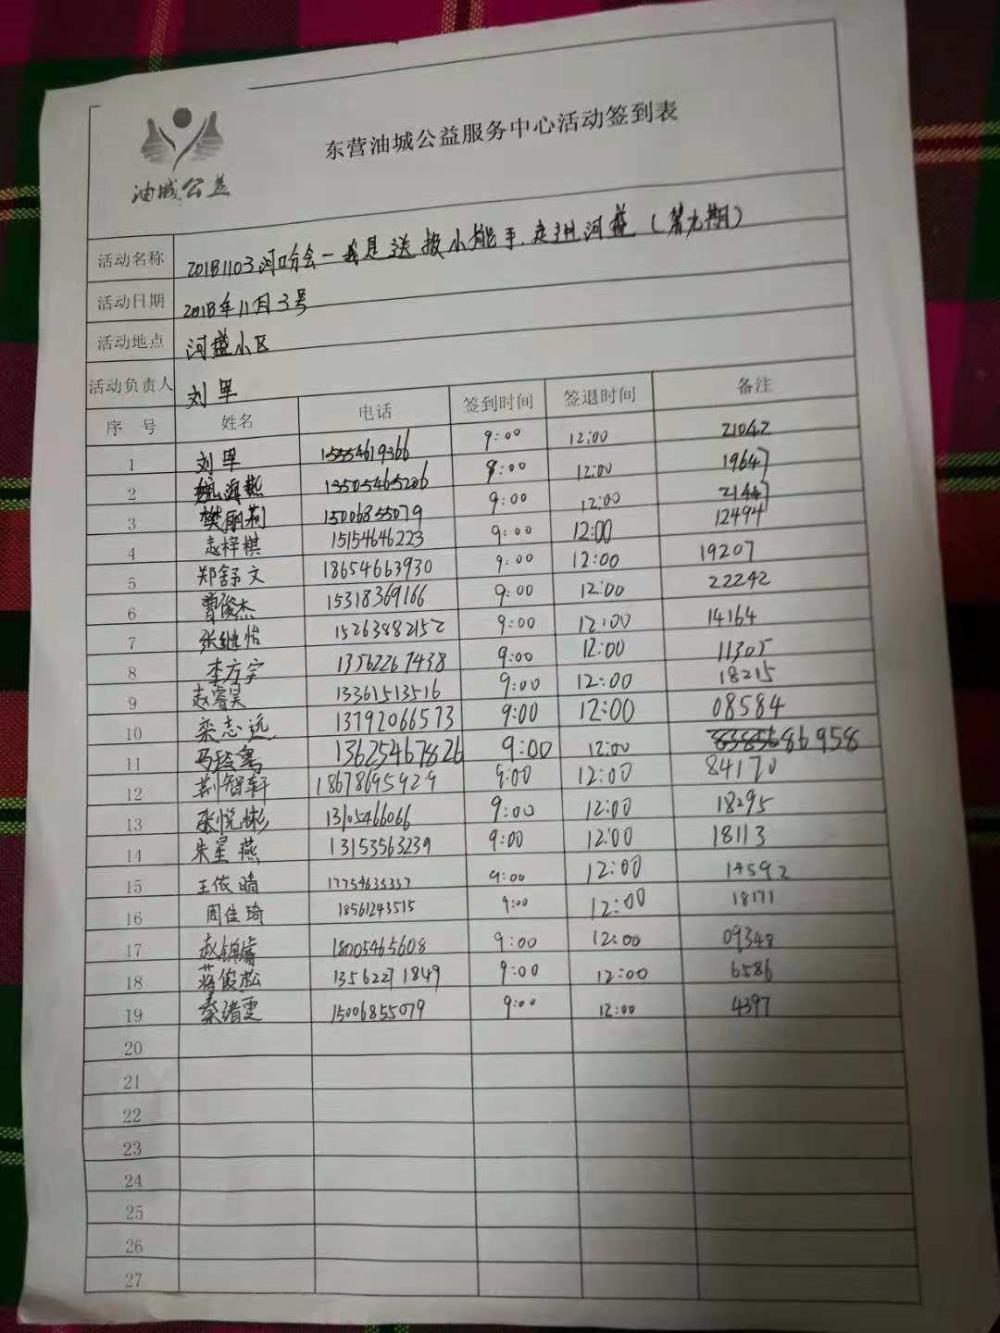 油城公益
东营油城公益服务中心活动签到表
活动名称 20181103河口分会-我是送报小能手.走进河盛(第九期)
活动日期 2018年11月3号
活动地点 河盛小区
活动负责人 刘军
序 号 姓名 电话 签到时间 签退时间 备注
1 刘军 15554619366 9:00 12:00 21042
2 13505465206 9:00 12:00 19647
3 樊丽莉 15006855079 9:00 12:00 21447
4 赵梓棋 15154646223 9:00 12:00 12494
5 郑舒文 18654663930 9:00 12:00 19207
6 曹俊杰 15318369166 9:00 12:00 22242
7 张继怡 15263882152 9:00 12:00 14164
8 李方宇 13562267438 9:00 12:00 11305
9 赵睿昊 13361513516 9:00 12:00 18215
10 栾志远 13792066573 9:00 12:00 08584
11 13625467826 9:00 12:00 86958
12 荆智轩 18678695929 9:00 12:00 84170
13 张悦彬 13105466066 9:00 12:00 18295
14 朱星燕 13153563239 9:00 12:00 18113
15 王依晴 17754635337 9:00 12:00 14592
16 周佳琦 18561243515 9:00 12:00 18171
17 赵锦睿 18005465608 9:00 12:00 09348
18 蒋俊松 13562271849 9:00 12:00 6586
19 秦绪雯 15006855079 9:00 12:00 4397
20
21
22
23
24
25
26
27